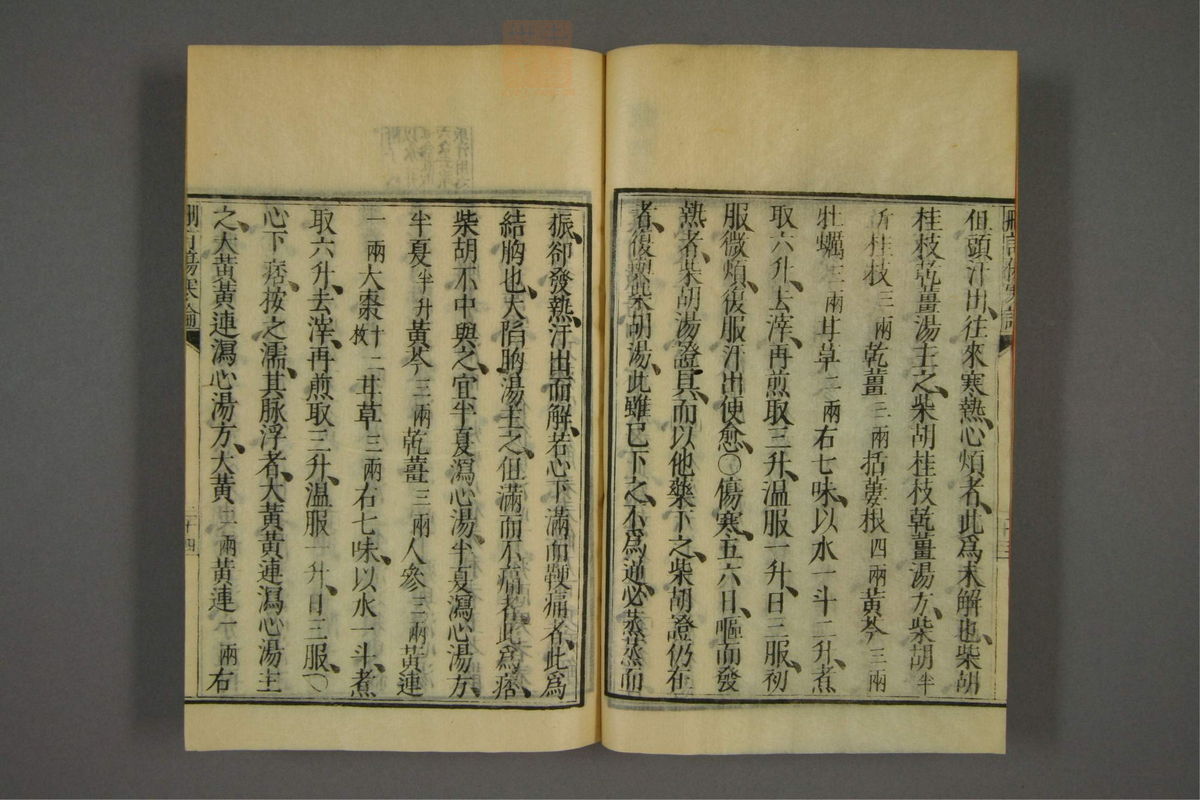 但頭汗出、往來寒熱、心煩者、此爲未解也、柴胡
桂枝乾薑湯主之、柴胡桂枝乾薑湯方、柴胡半
斤桂枝三兩乾薑三兩括蔞根四兩黃芩三兩
牡蠣三兩甘草二兩右七味、以水一斗二升、煮
取六升、去滓、再煎取三升、温服一升、日三服、初
服微煩、復服汗出便愈、〇傷寒五六日、嘔而發
熱者、柴胡湯證具、而以他藥下之、柴胡證仍在
者、復與柴胡湯、此雖已下之、不爲逆、必蒸蒸而
振、卻發熱、汗出而解、若心下滿而鞕痛者、此爲
結胸也、大陷胸湯主之、但滿而不痛者、此爲痞、
柴胡不中與之、宜半夏瀉心湯、半夏瀉心湯方、
半夏半升黃芩三兩乾薑三兩人參三兩黃連
一兩大棗十二枚甘草三兩右七味、以水一斗、煮
取六升、去滓、再煎取三升、温服一升、日三服、〇
心下痞、按之濡、其脉浮者、大黃黃連瀉心湯主
之、大黃黃連瀉心湯方、大黃二兩黃連一兩右